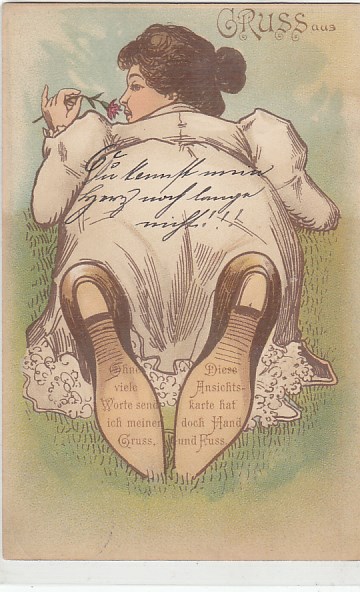 GRUSS aus
Du kennst mein
Herz noch lange
nicht!!!
Ohne
viele
Worte send
ich meinen
Gruss,
Diese
Ansichts-
karte hat
doch Hand
und Fuss.